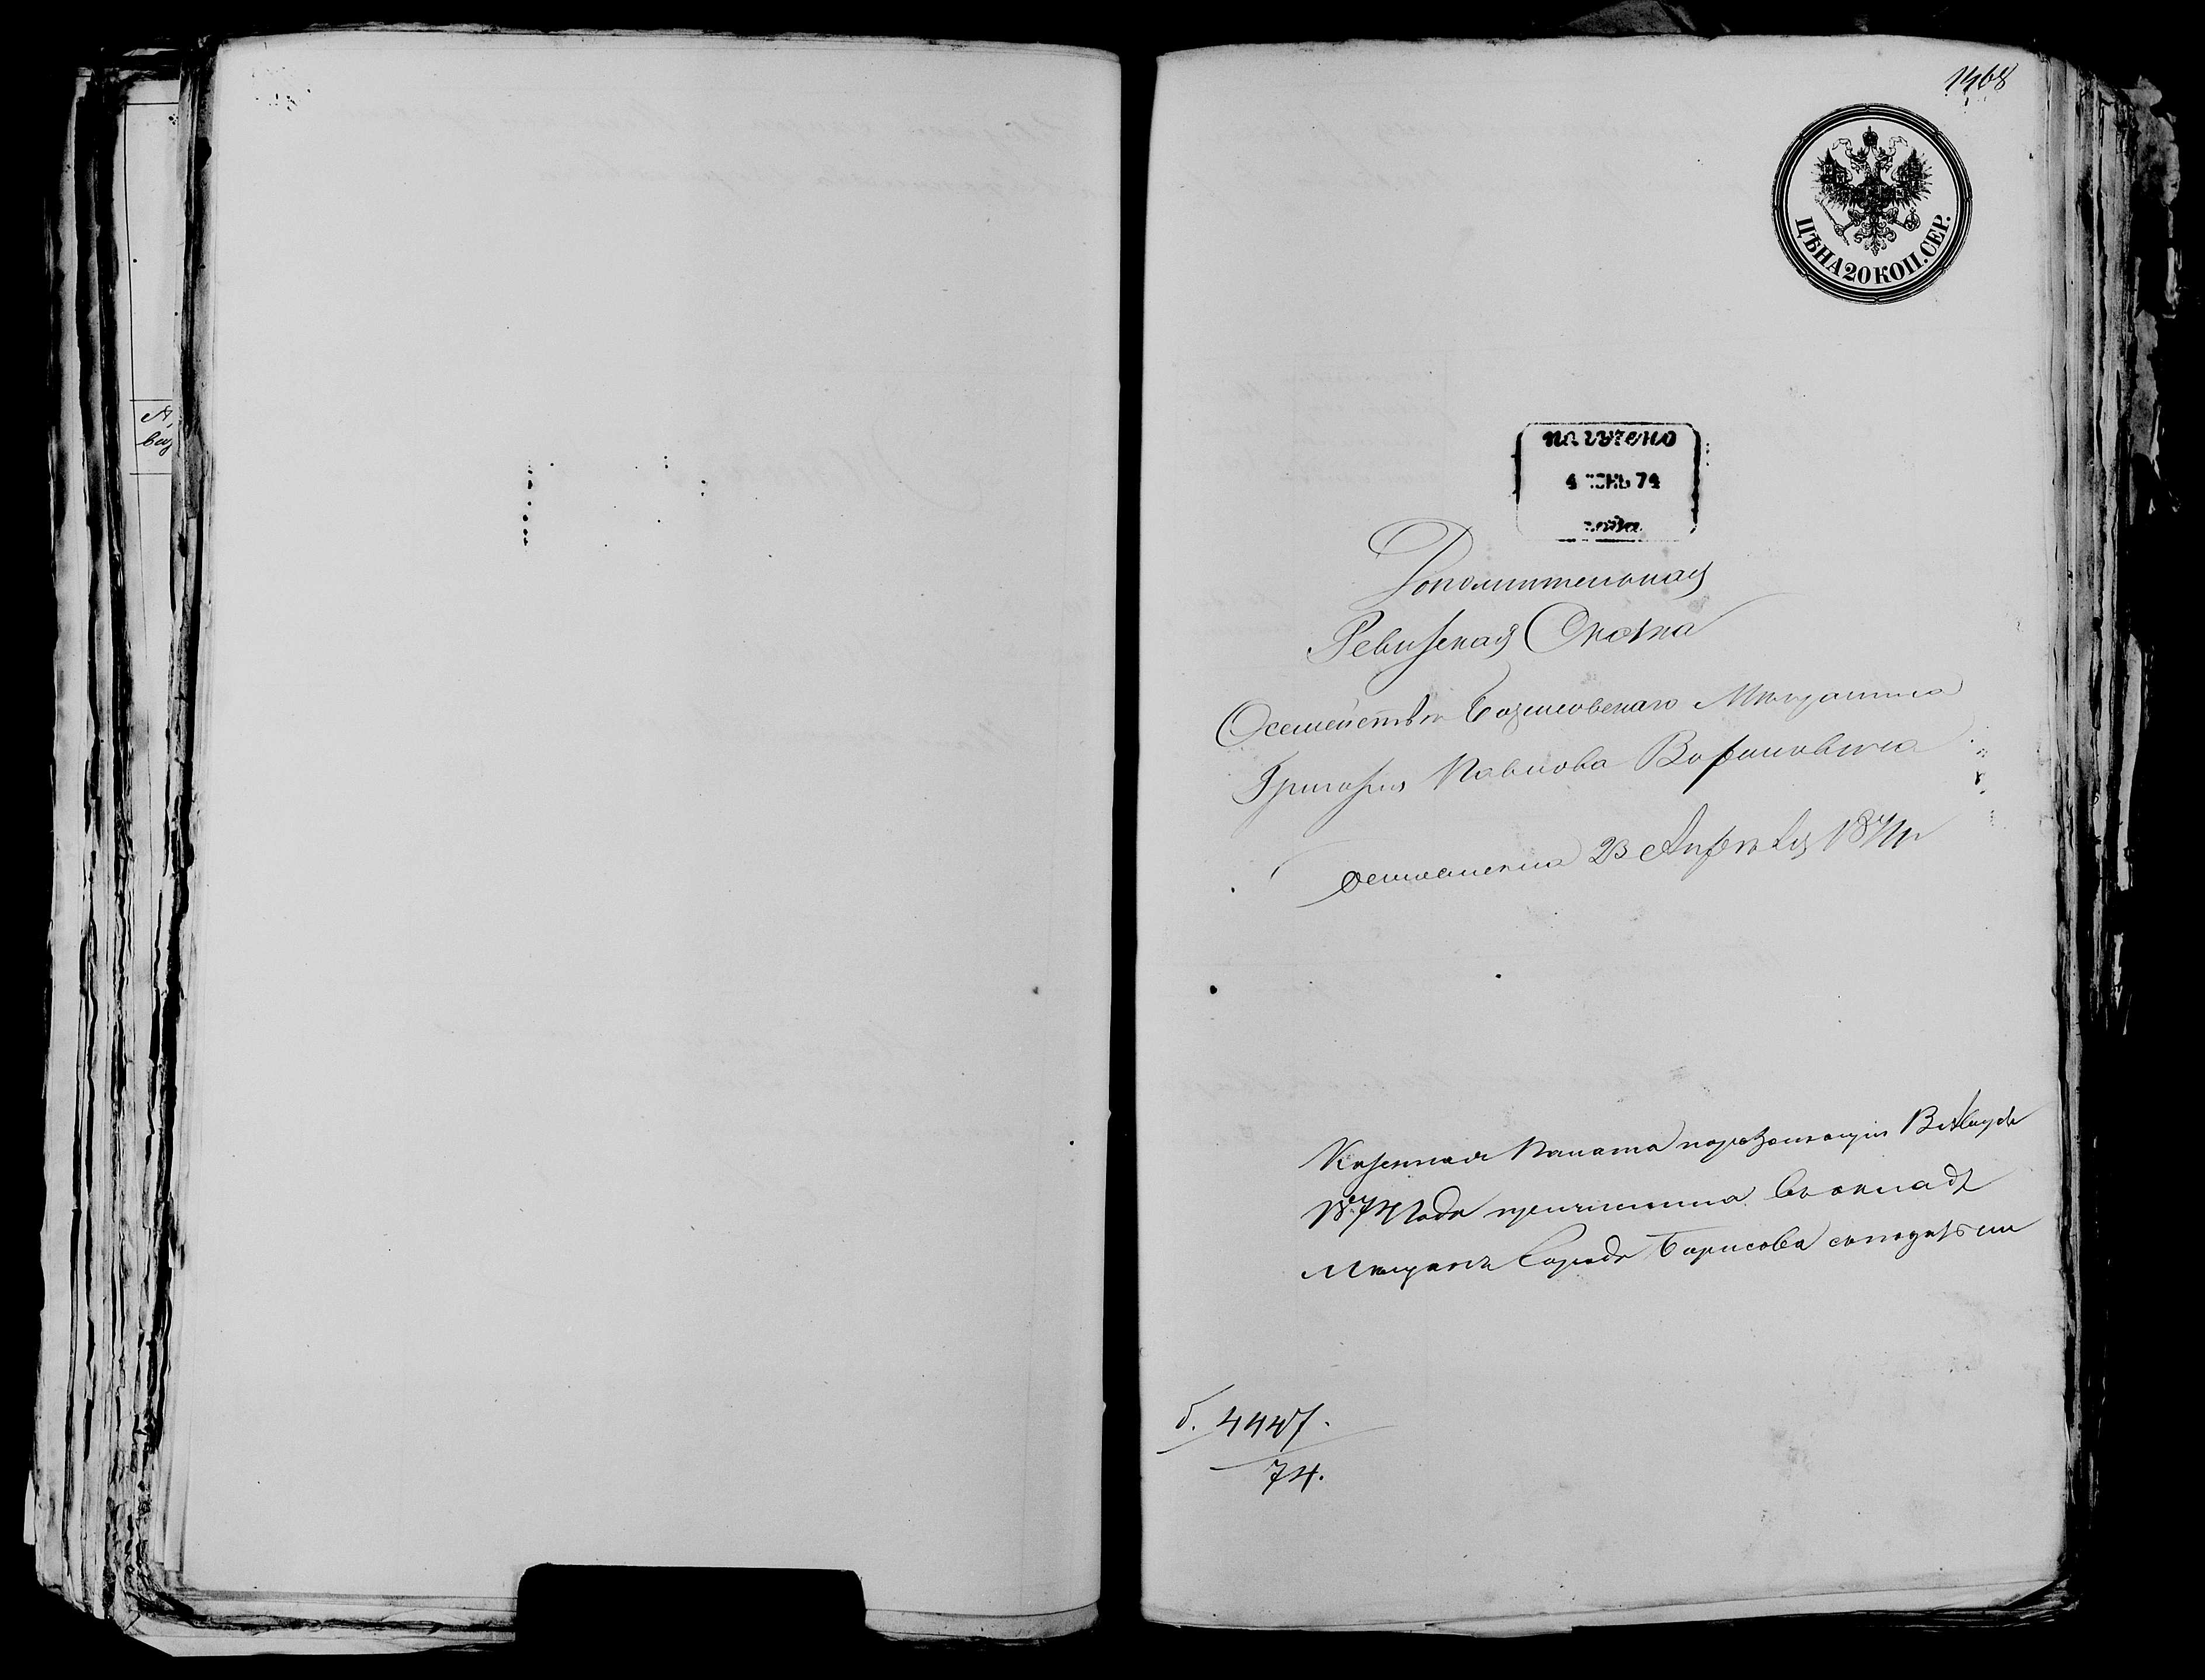 1468
ЦѢНА 20 КОП. СЕР.
получено
4 ІЮНЬ 74
года
Дополнительная
Ревизская Сказка
О семействѣ Борисовскаго Мѣщанина
Григорія Павлова
составлена 23 Апрѣля 1874 г
Казенная Палата по резолюціи
1874 года причислила въ окладъ
Мѣщанъ Города Борисова
б. 4447.
74.